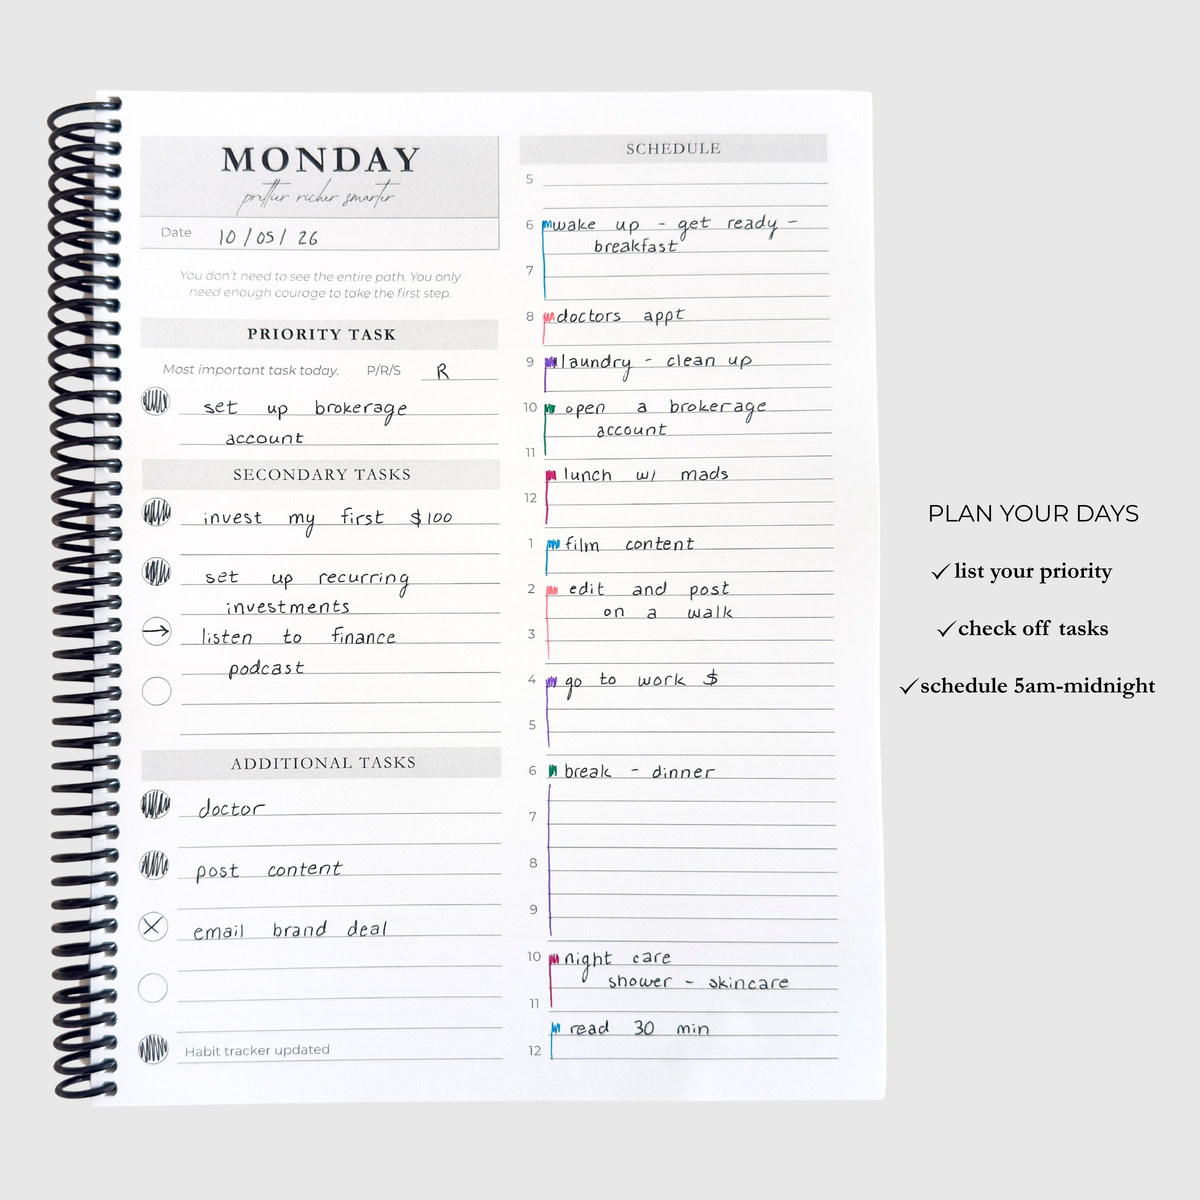 MONDAY
prettier richer smarter
Date 10/05/26
You don't need to see the entire path. You only
need enough courage to take the first step.
PRIORITY TASK
Most important task today. P/R/S R
set up brokerage
account
SECONDARY TASKS
invest my first $100
set up recurring
investments
listen to finance
podcast
ADDITIONAL TASKS
doctor
post content
email brand deal
Habit tracker updated
SCHEDULE
5
6 wake up - get ready -
breakfast
7
8 doctors appt
9 laundry - clean up
10 open a brokerage
account
11
lunch w/ mads
12
1 film content
2 edit and post
on a walk
3
4 go to work $
5
6 break - dinner
7
8
9
10 night care
shower - skincare
11
read 30 min
12
PLAN YOUR DAYS
✓ list your priority
✓ check off tasks
✓ schedule 5am-midnight